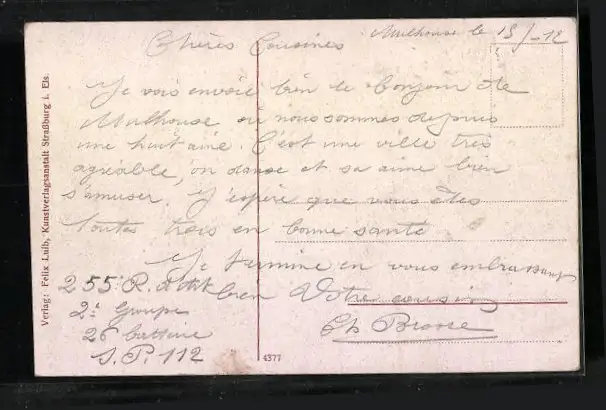 Mulhouse le 15/-12
Chères Cousines
Je vois envoie bien le bonjour de
Mulhouse où nous sommes depuis
une huitaine. C'est une ville très
agréable, on danse et sa aime bien
s'amuser. J'espère que vous êtes
toutes trois en bonne santé
Je termine en vous embrassant
bien Votre cousin
Ch Brosse
255e R.
2e Groupe
26 batterie
S.P. 112
4377
Verlag: Felix Luib, Kunstverlagsanstalt Straßburg i. Els.